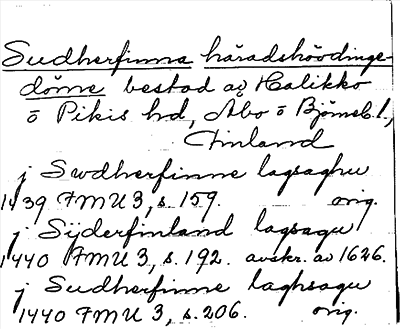 Sudherfinna häradshövdinge-
döme bestod av Halikko
o Pikis hd, Åbo o Björneb. l.,
Finland
j Swdherfinne lagsaghu
1439 FMU 3, s. 159. orig.
j Sijderfinland lagsagu
1440 FMU 3, s. 192. avskr. av 1626.
j Sudherfinne laghsagu
1440 FMU 3, s. 206. orig.